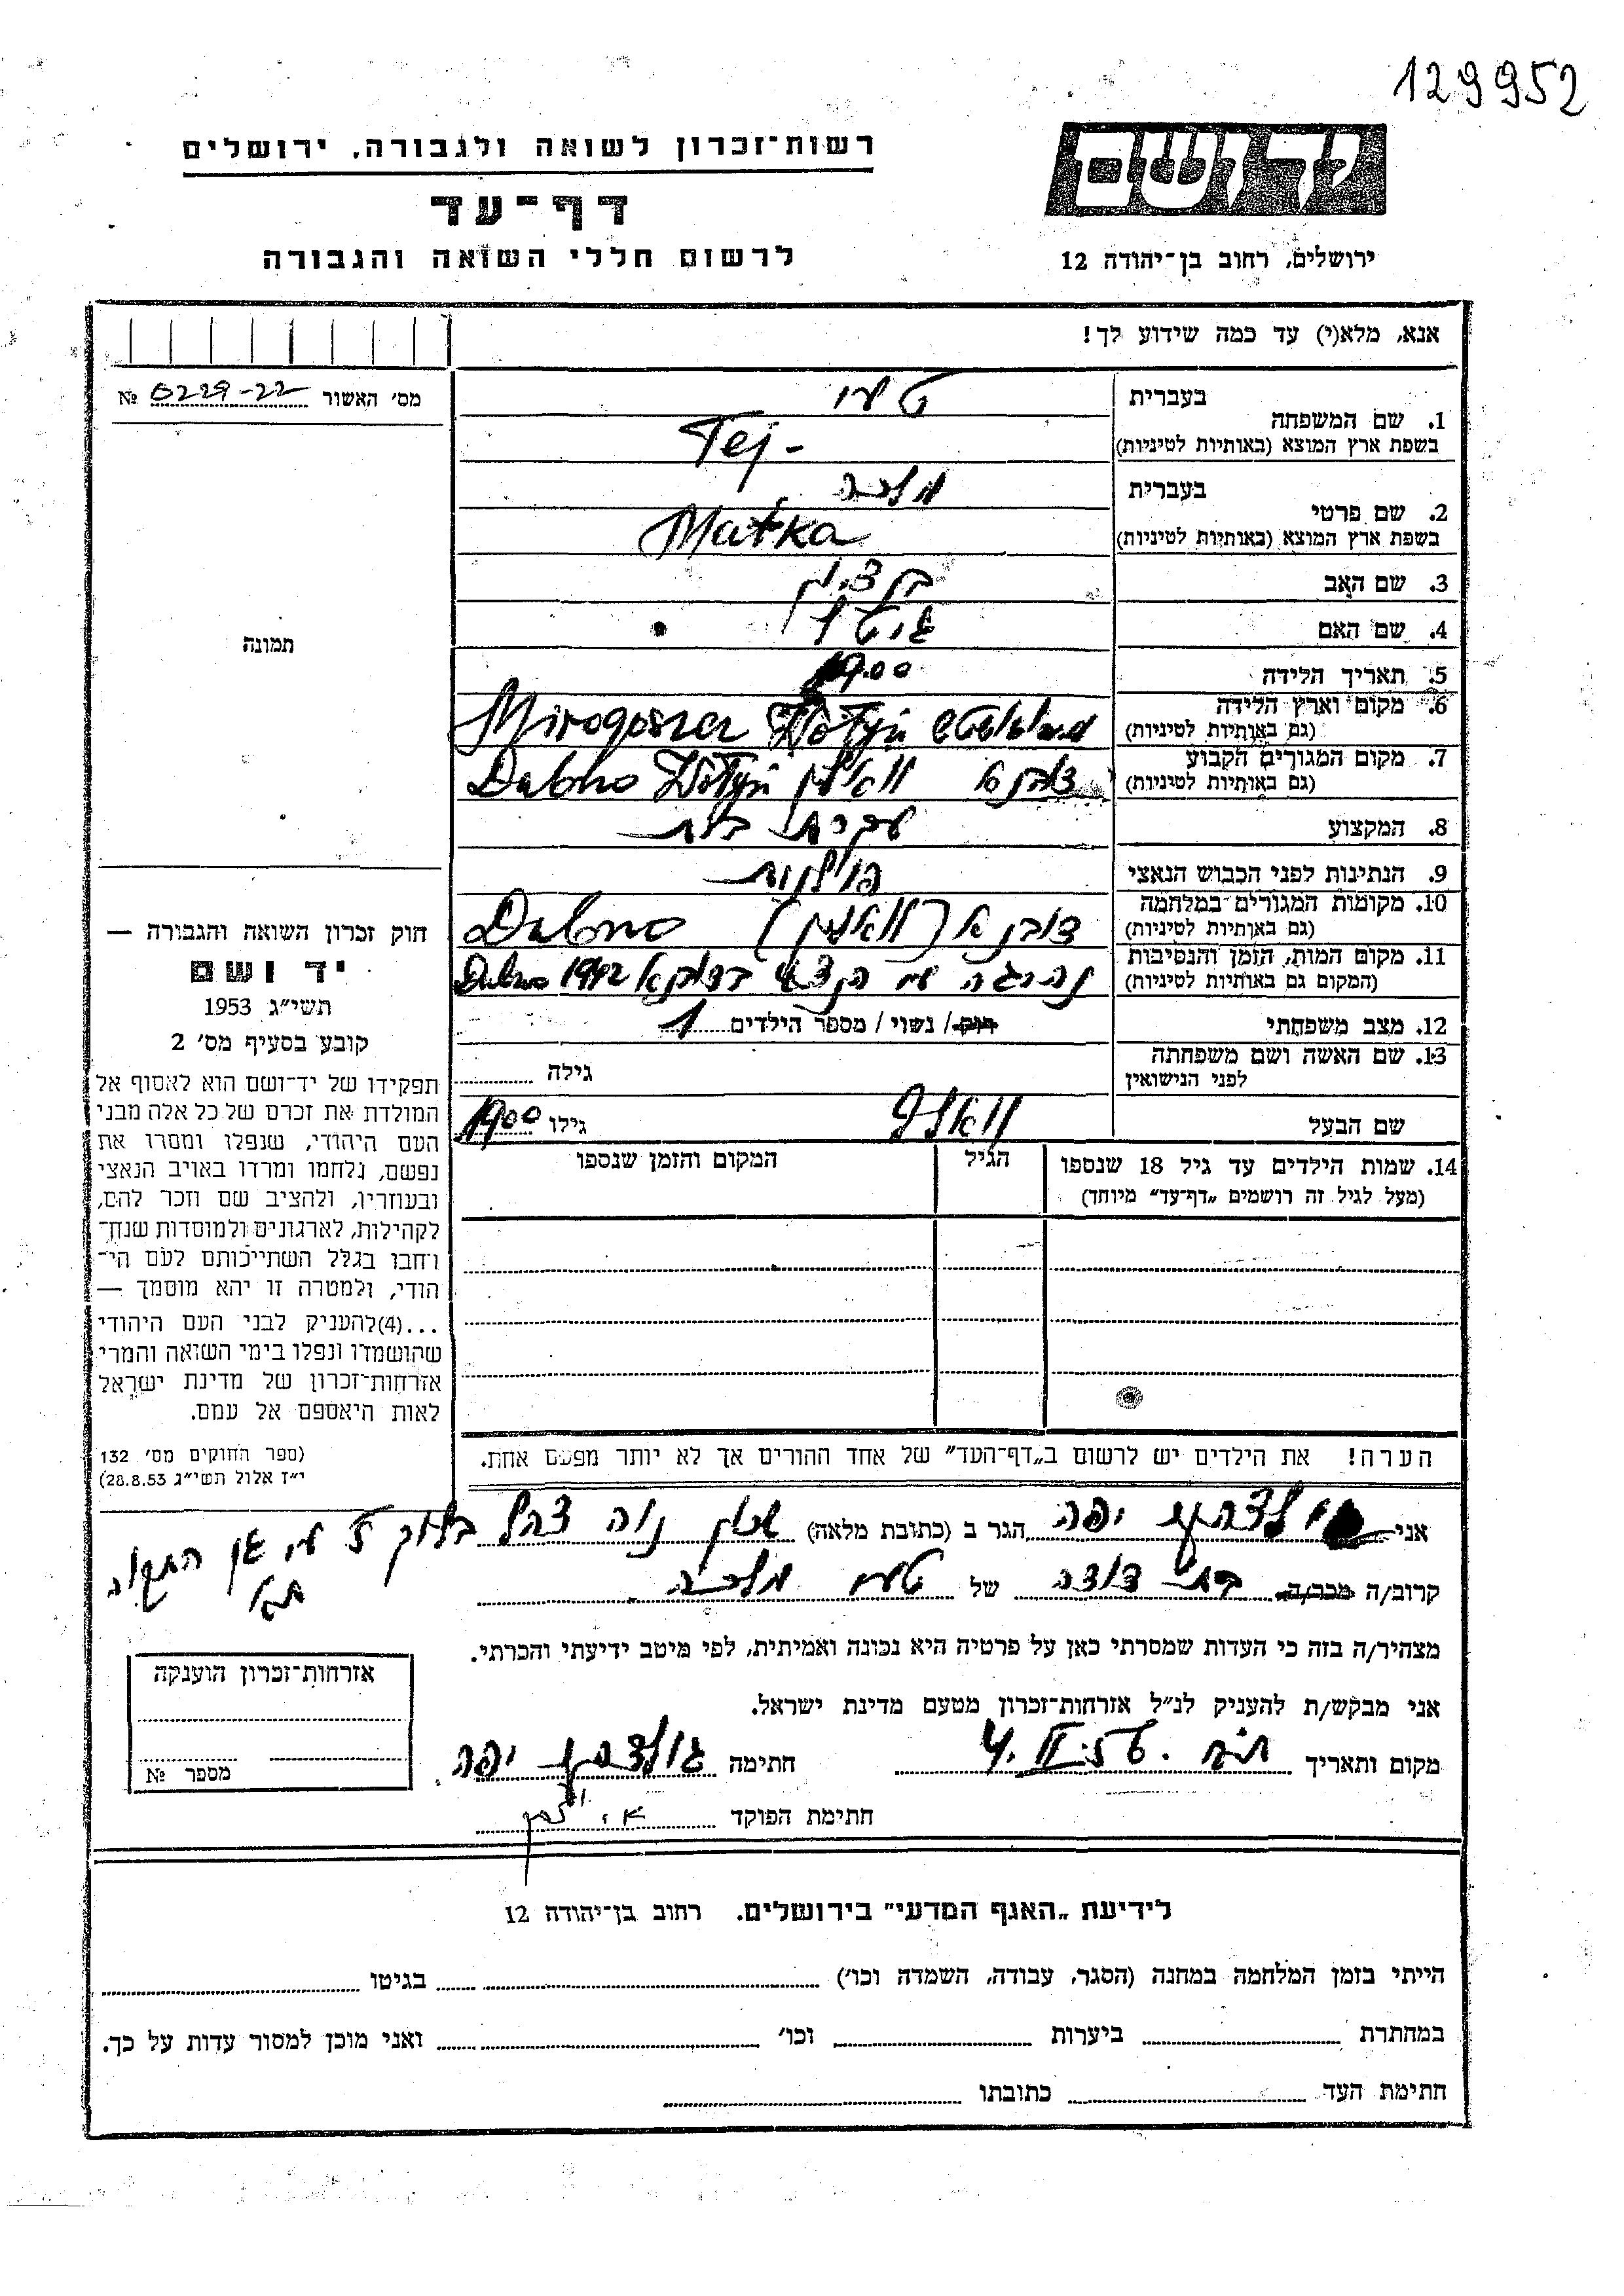 129952
יד ושם
ירושלים, רחוב בן־יהודה 12
רשות־זכרון לשואה ולגבורה, ירושלים
דף־עד
לרשום חללי השואה והגבורה
אנא, מלא(י) עד כמה שידוע לך!
מס' האשור 0229-22 №
1. שם המשפחה
בעברית טעי
בשפת ארץ המוצא (באותיות לטיניות) Tej-
2. שם פרטי
בעברית מלכה
בשפת ארץ המוצא (באותיות לטיניות) Małka
3. שם האב בן ציון
4. שם האם
5. תאריך הלידה 1900
6. מקום וארץ הלידה
(גם באותיות לטיניות) Wołyń
7. מקום המגורים הקבוע
(גם באותיות לטיניות) דובנא וואלין Dubno Wołyń
8. המקצוע עקרת בית
9. הנתינות לפני הכבוש הנאצי פולנית
10. מקומות המגורים במלחמה
(גם באותיות לטיניות) דובנא (וואלין) Dubno
11. מקום המות, הזמן והנסיבות
(המקום גם באותיות לטיניות) נהרגה בדובנא 1942 Dubno
12. מצב משפחתי רוק / נשוי / מספר הילדים 1
13. שם האשה ושם משפחתה
לפני הנישואין גילה
שם הבעל וואלף גילו 1900
14. שמות הילדים עד גיל 18 שנספו
(מעל לגיל זה רושמים „דף־עד" מיוחד)
הגיל
המקום והזמן שנספו
הערה! את הילדים יש לרשום ב„דף־העד" של אחד ההורים אך לא יותר מפעם אחת.
תמונה
חוק זכרון השואה והגבורה —
יד ושם
תשי"ג 1953
קובע בסעיף מס' 2
תפקידו של יד־ושם הוא לאסוף אל
המולדת את זכרם של כל אלה מבני
העם היהודי, שנפלו ומסרו את
נפשם, נלחמו ומרדו באויב הנאצי
ובעוזריו, ולהציב שם וזכר להם,
לקהילות, לארגונים ולמוסדות שנח־
רחבו בגלל השתייכותם לעם הי־
הודי, ולמטרה זו יהא מוסמך —
...(4)להעניק לבני העם היהודי
שהושמדו ונפלו בימי השואה והמרי
אזרחות־זכרון של מדינת ישראל
לאות היאספם אל עמם.
(ספר החוקים מס' 132
י"ז אלול תשי"ג 28.8.53)
אני יפה הגר ב (כתובת מלאה) שכון נוה צהל בלוק 7
התקוה
תא
קרוב/ה מכר/ה בת דודה של טעי מלכה
מצהיר/ה בזה כי העדות שמסרתי כאן על פרטיה היא נכונה ואמיתית, לפי מיטב ידיעתי והכרתי.
אני מבקש/ת להעניק לנ"ל אזרחות־זכרון מטעם מדינת ישראל.
מקום ותאריך 4.II.57 חתימה יפה
חתימת הפוקד
אזרחות־זכרון הוענקה
מספר №
לידיעת „האגף המדעי" בירושלים. רחוב בן־יהודה 12
הייתי בזמן המלחמה במחנה (הסגר, עבודה, השמדה וכו') בגיטו
במחתרת ביערות וכו' ואני מוכן למסור עדות על כך.
חתימת העד כתובתו